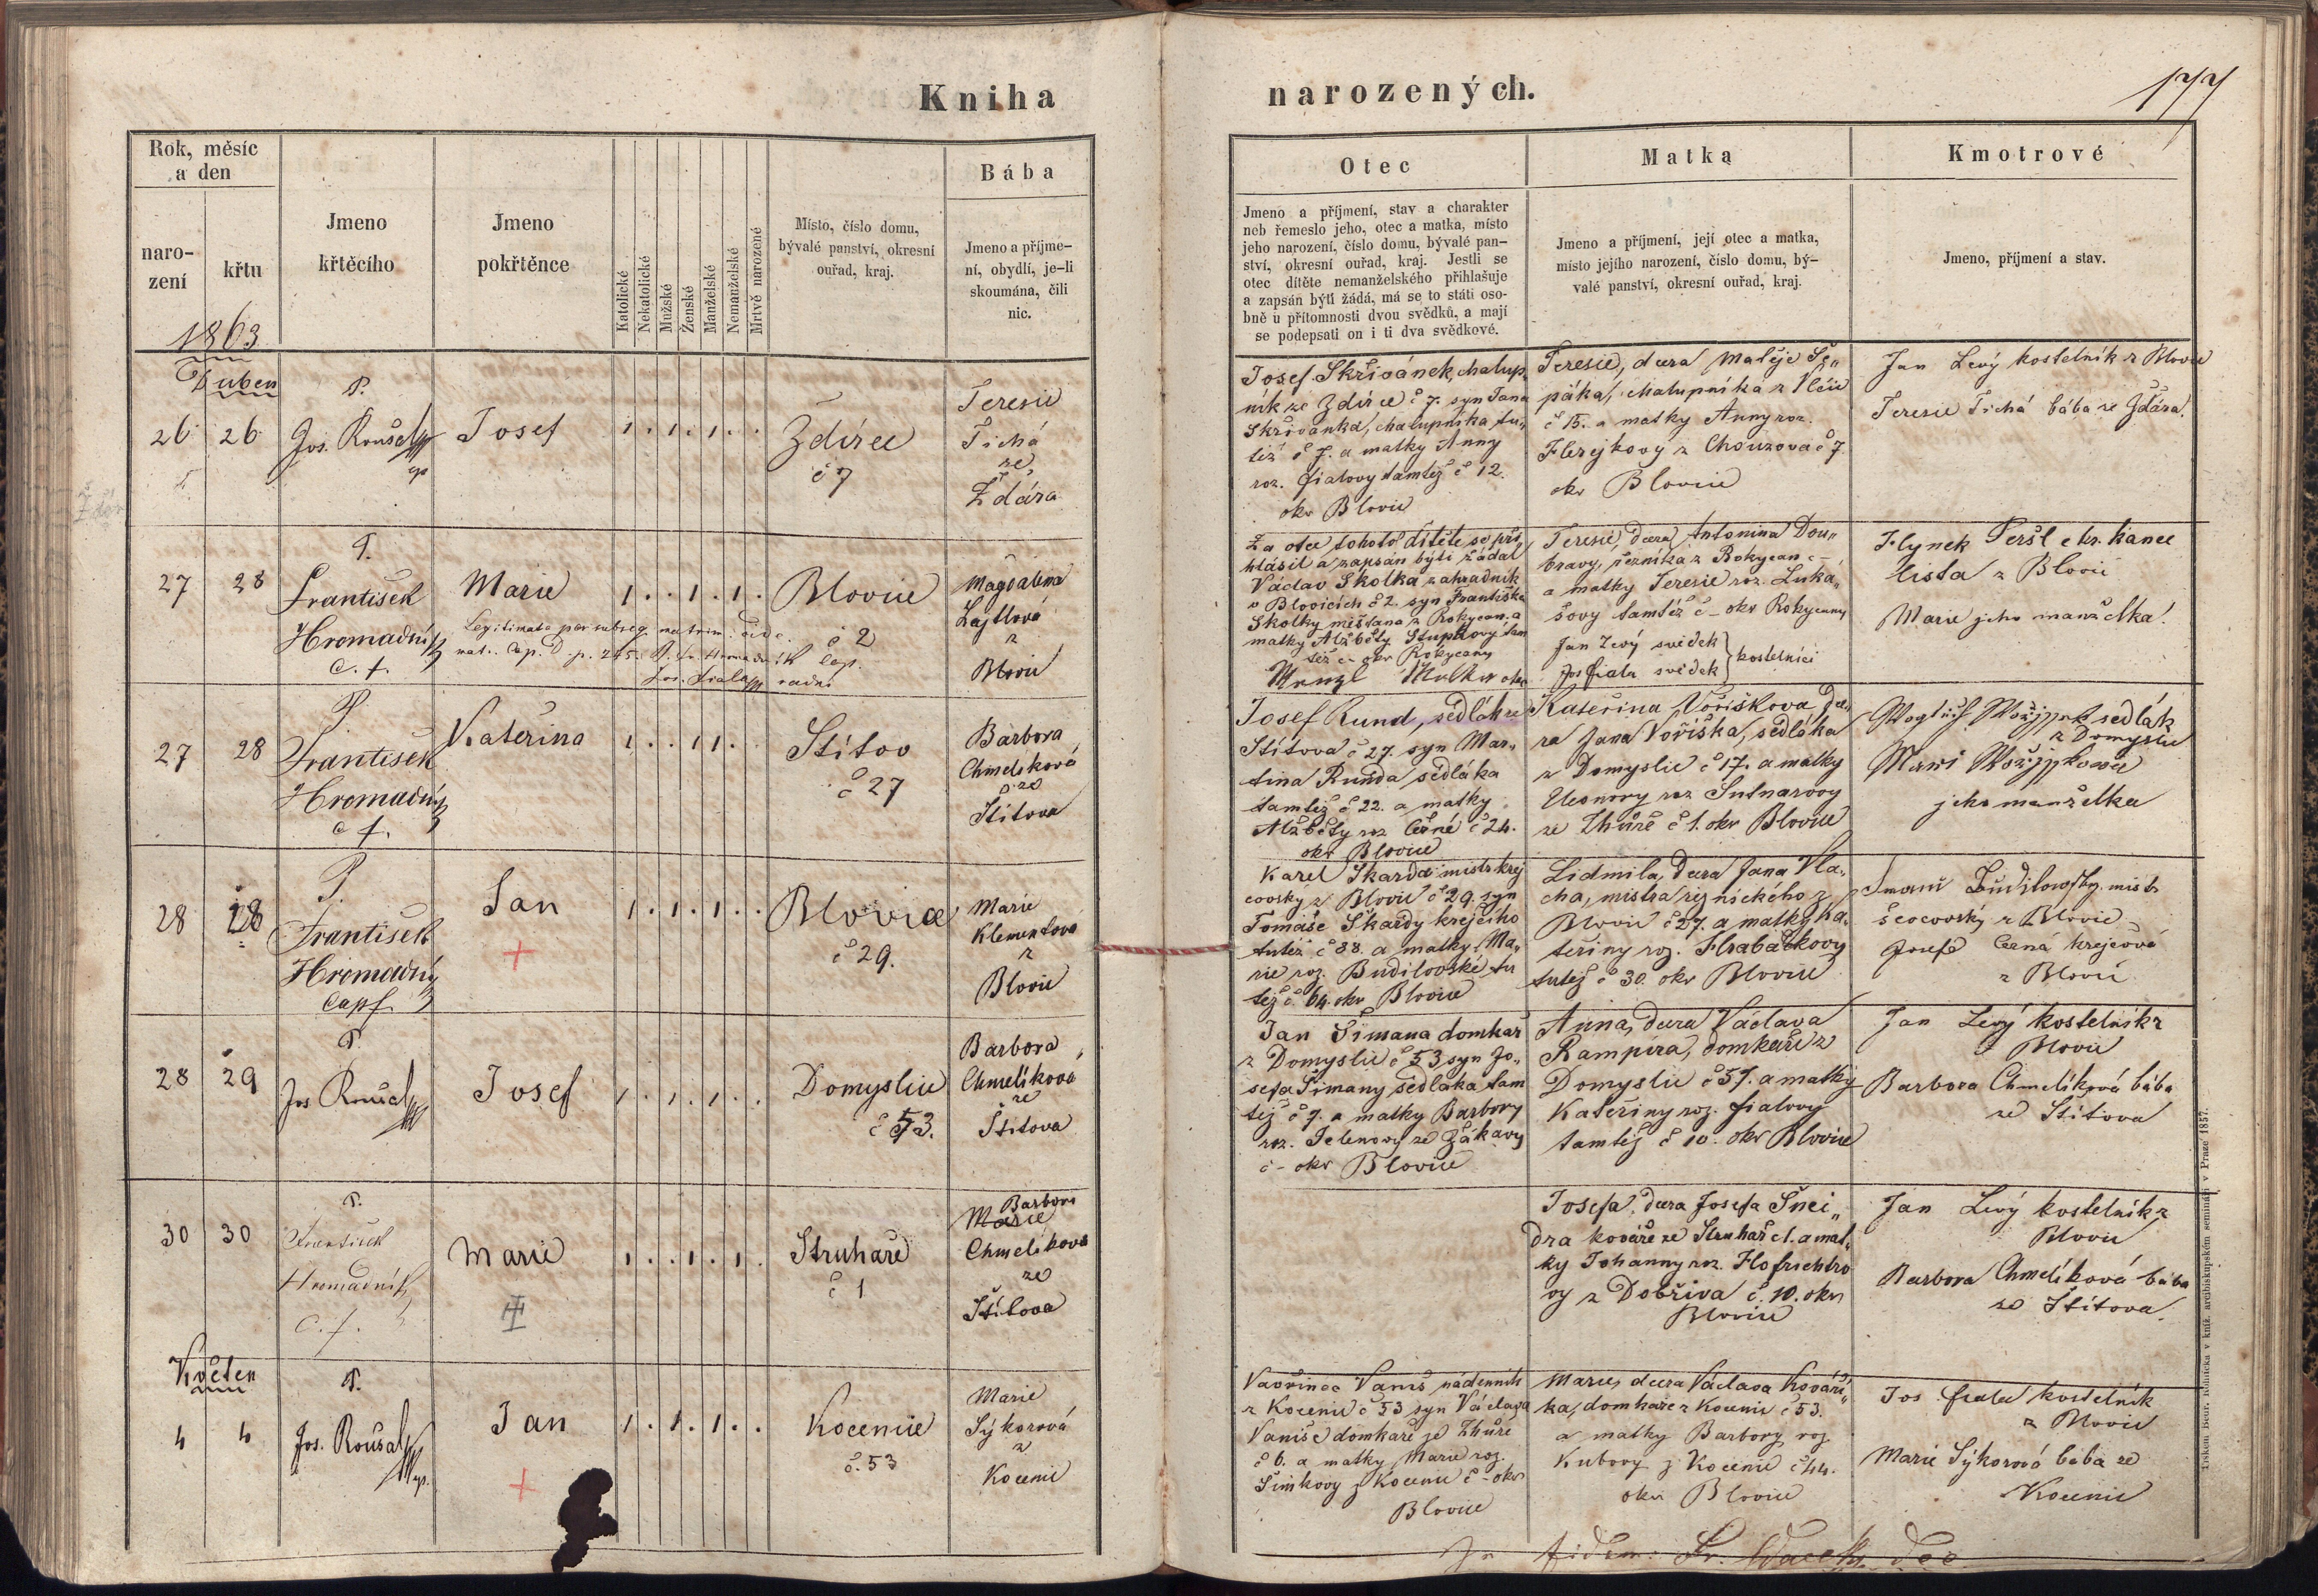 Kniha
narozených.
177
Rok, měsíc
a den
naro-
zení
křtu
Jmeno
křtěcího
Jmeno
pokřtěnce
Katolické
Nekatolické
Mužské
Ženské
Manželské
Nemanželské
Mrtvě narozené
Místo, číslo domu,
bývalé panství, okresní
ouřad, kraj.
Bába
Jmeno a příjme-
ní, obydlí, je-li
skoumána, čili
nic.
Otec
Jmeno a příjmení, stav a charakter
neb řemeslo jeho, otec a matka, místo
jeho narození, číslo domu, bývalé pan-
ství, okresní ouřad, kraj. Jestli se
otec dítěte nemanželského přihlašuje
a zapsán býti žádá, má se to státi oso-
bně u přítomnosti dvou svědků, a mají
se podepsati on i ti dva svědkové.
Matka
Jmeno a příjmení, její otec a matka,
místo jejího narození, číslo domu, bý-
valé panství, okresní ouřad, kraj.
Kmotrové
Jmeno, příjmení a stav.
1863
Duben
26 26
P.
Jos. Roušal
Josef
1 . 1 . 1 . .
Ždírec
č 7
Teresie
Tichá
ze
Ždára
Josef Skřivánek, chalup-
ník ze Zdírce č 7. syn Jana
Skřivánka, chalupníka tu-
též č 7. a matky Anny
roz. fialovy tamtéž č 12.
okr Blovic
Teresie, dcera Matěje Še„
páka, chalupníka z Vlčic
č 15. a matky Anny roz.
Flerejkovy z Chouzova č 7
okr Blovice
Jan Levý kostelník z Blovic
Teresie Tichá bába ze Ždára.
27 28
P.
František
Hromadník
c. f.
Marie
1 . . 1 . 1 .
Legitimata per subseq. matrim. vide
mat. Cop. D. p. 245.
Jos. Fiala radní
Blovice
č 2
Magdalena
Lajtlová
z
Blovic
Za otce tohoto dítěte se při„
hlásil a zapsán býti žádal
Václav Skolka zahradník
v Blovicích č 2. syn Františka
Skolky měšťana z Rokycan a
matky Alžběty Stupkovy tam
též č - okr Rokycany
Teresie, dcera Antonína Dou„
bravy, řezníka z Rokycan č -
a matky Teresie roz. Luká„
šovy tamtéž č - okr Rokycany
Jan Levý svědek
Jos fiala svědek } kostelníci
Hynek Peršl c kr. kance
lista z Blovic
Marie jeho manželka!
27 28
P.
František
Hromadník
c f.
Kateřina
1 . . 1 1 . .
Štítov
č 27
Barbora
Chmelíková
ze
Štítova
Josef Rund, sedlák ze
Štítova č 27. syn Mar-
tina Runda sedláka
tamtéž č 22. a matky
Alžběty roz Černé č 24.
okr Blovice
Kateřina Voříškova, dce-
ra Jana Voříška, sedláka
z Domyslic č 17. a matky
Eleonory roz Sutnarovy
ze Zhůře č 1. okr Blovice
sedlák
z Domyslic
jeho manželka
28 28
P.
František
Hromadník
Capl.
Jan
1 . 1 . 1 . .
Blovice
č 29.
Marie
Klementová
z
Blovic
Karel Škarda mistr krej
čovský z Blovic č 29. syn
Tomáše Škardy krejčího
tutéž č 38. a matky Ma„
rie roz. Budilovské tu
též č 64. okr Blovice
Lidmila, dcera Jana Vla-
cha, mistra řeznického z
Blovic č 27. a matky Ka-
teřiny roz. Hrabáčkovy
tutéž č 30. okr Blovice
mistr
ševcovský z Blovic
Josefa Černá krejčová
z Blovic
28 29
P.
Jos Roušal
Josef
1 . 1 . 1 . .
Domyslice
č 53.
Barbora
Chmelíkova
ze
Štítova
Jan Šimana domkář
z Domyslic č 53 syn Jo„
sefa Šimany sedláka tam
též č 7. a matky Barbory
roz. Jelenovy ze Žákavy
č - okr Blovice
Anna, dcera Václava
Rampíra, domkáře z
Domyslic č 57. a matky
Kateřiny roz. fialovy
tamtéž č 10. okr Blovice
Jan Levý kostelník z
Blovic
Barbora Chmelíková bába
ze Štítova
30 30
P.
František
Hromadník
c. f.
Marie
1 . . 1 . 1 .
Struhaře
č 1
Barbora
Marie
Chmelíkova
ze
Štítova
Josefa, dcera Josefa Šnei„
dra kováře ze Struhař č 1. a mat„
ky Johanny roz. Hofrichtro
vy z Dobříva č. 10. okr
Blovice
Jan Levý kostelník z
Blovic
Barbora Chmelíková bába
ze Štítova.
Květen
4 4
P.
Jos. Roušal
Jan
1 . 1 . 1 . .
Kocenice
č. 53
Marie
Sýkorová
z
Kocenic
Vavřinec Vaniš nádenník
z Kocenic č 53 syn Václava
Vaniše domkáře ze Zhůře
č 6. a matky Marie roz.
Šimkovy z Kocenic č - okr
Blovice
Marie, dcera Václava Kováří„
ka, domkáře z Kocenic č 53.
a matky Barbory roz.
Kubovy z Kocenic č 44.
okr Blovice
Jos fiala kostelník
z Blovic
Marie Sýkorová bába ze
Kocenic
In fidem:
Tiskem Bedř. Rohlíčka v kníž. arcibiskupském semináři v Praze 1857.